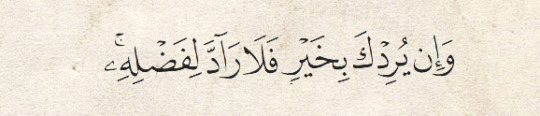 وَإِن يُرِدْكَ بِخَيْرٍ فَلَا رَآدَّ لِفَضْلِهِۦۚ